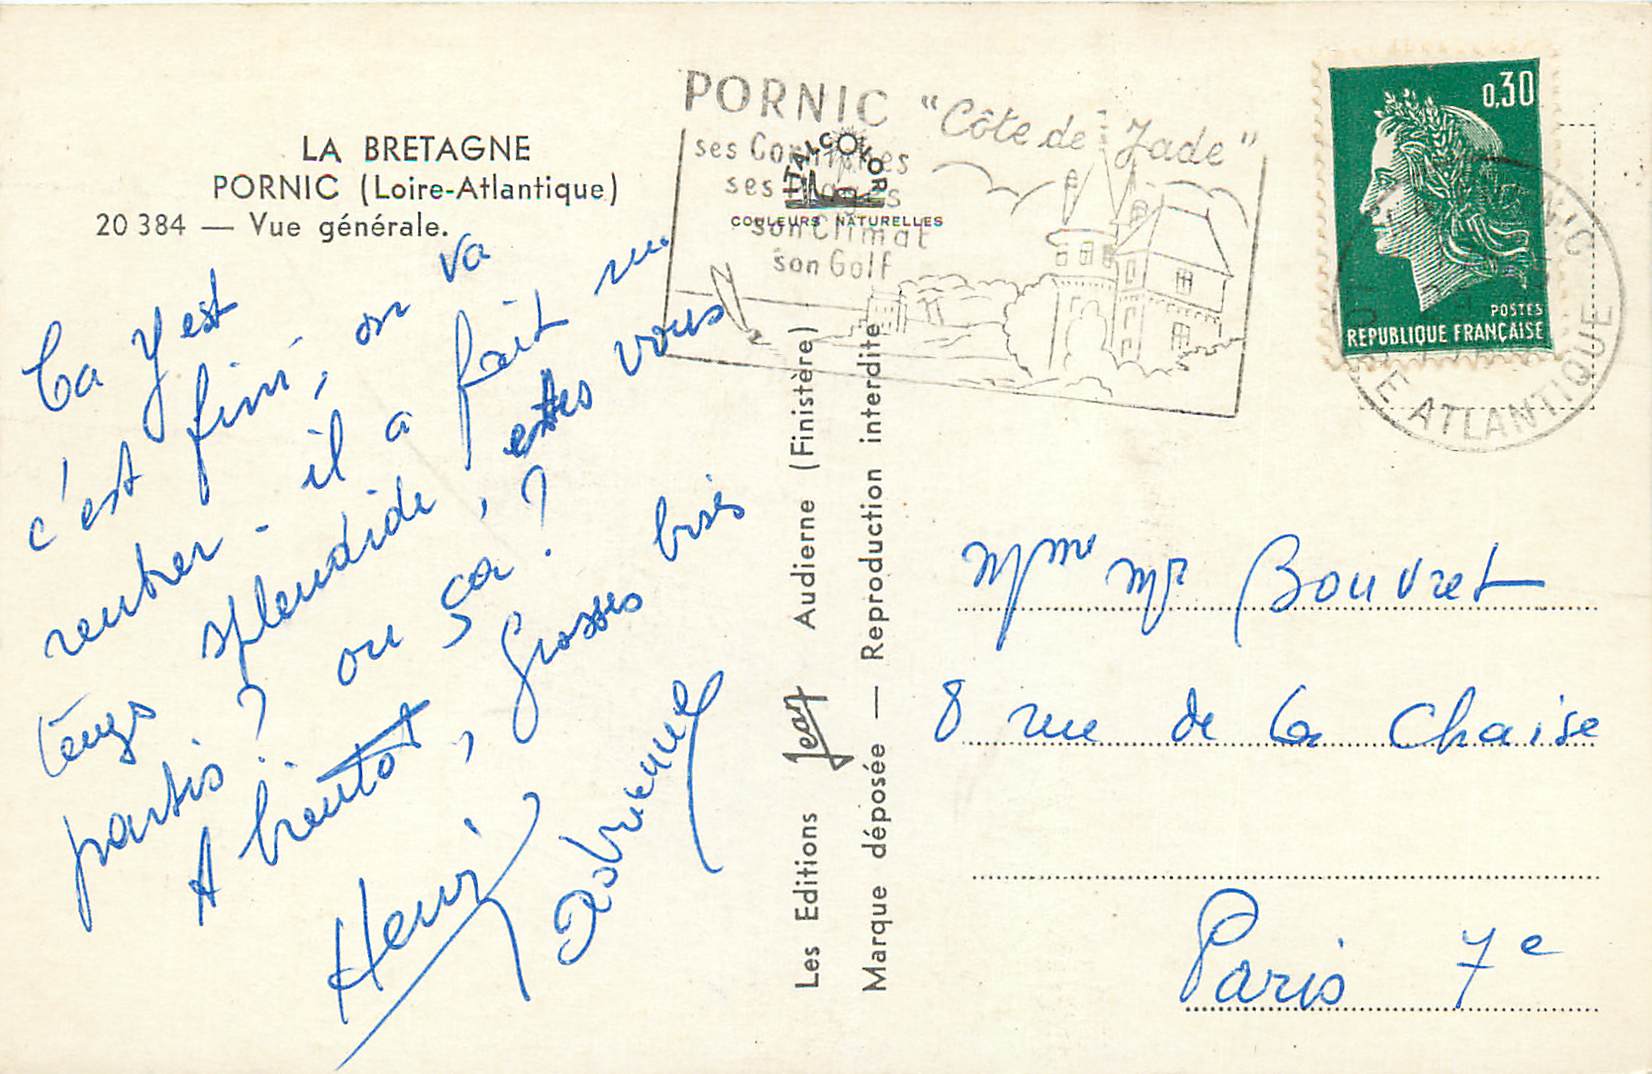 LA BRETAGNE
PORNIC (Loire-Atlantique)
20 384 — Vue générale.
Ca y est
c'est fini, on va
rentrer - il a fait un
temps splendide, estes vous
partis ? ou ça ?
A bientôt, grosses bises
Henri
PORNIC "Côte de Jade"
ses Corniches
ses Plages
son Climat
son Golf
ITALCOLOR
COULEURS NATURELLES
Les Editions Jean Audierne (Finistère)
Marque déposée — Reproduction interdite
0,30
POSTES
REPUBLIQUE FRANÇAISE
PORNIC
LOIRE ATLANTIQUE
Mme Mr Bouvret
8 rue de la Chaise
Paris 7e